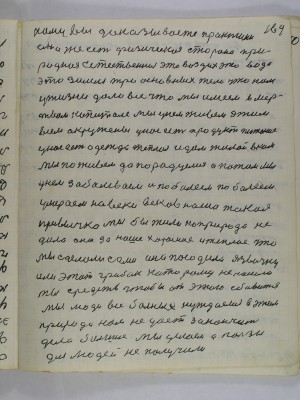 169
кому вы доказываете практике
она же есть физическая сторона при-
родная естественная это воздух это вода
это земля три основных тела что нам
жизни дало все что мы имеем в мер-
твом капитале мы умеем живем этим
всем окружены у нас есть продукт питание
у нас есть одежда теплая и дом жилой
мы поживем да порадуемся а потом мы
заболеваем и поболеем поболеем
умираем на веки веков наша такая
привычка мы бы жили но природа не
дала она за наше хорошее и теплое что
мы сделали само она посадила язвочку
или этот грибок которому не нашли
мы средств чтобы от этого избавится
мы люди все больные нуждаемся в этом
природа нам не дает закончить
дела больше мы делаем а пользы
для людей не получили